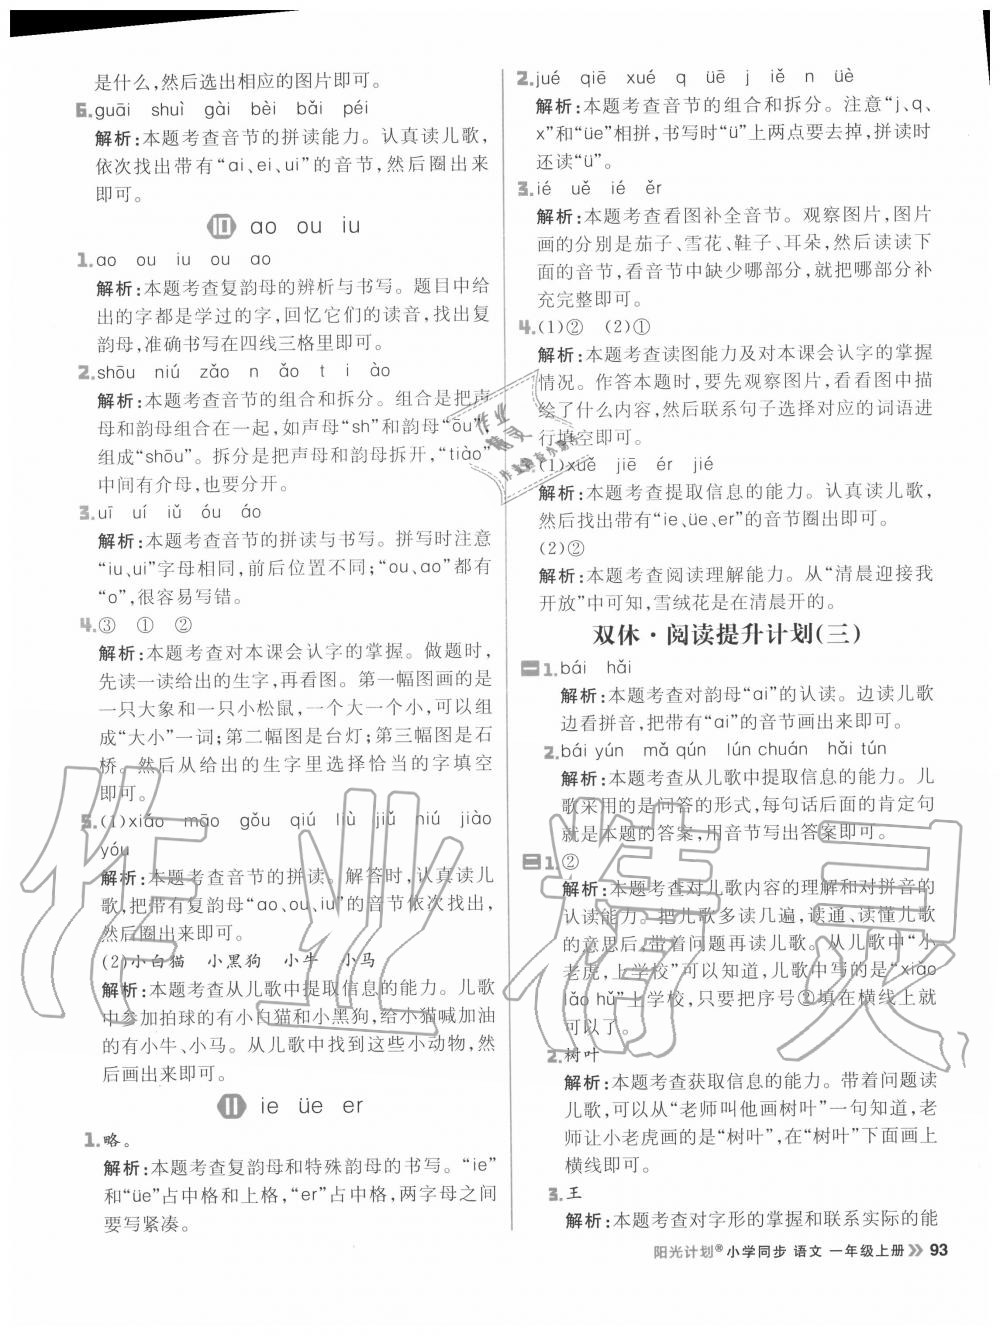 是什么,然后选出相应的图片即可。
6. guāi shuì gài bèi bǎi péi
解析:本题考查音节的拼读能力。认真读儿歌,
依次找出带有“ai、ei、ui”的音节,然后圈出来
即可。
10 ao ou iu
1. ao ou iu ou ao
解析:本题考查复韵母的辨析与书写。题目中给
出的字都是学过的字,回忆它们的读音,找出复
韵母,准确书写在四线三格里即可。
2. shōu niú zǎo n ǎo t i ào
解析:本题考查音节的组合和拆分。组合是把声
母和韵母组合在一起,如声母“sh”和韵母“ōu”,
组成“shōu”。拆分是把声母和韵母拆开,“tiào”
中间有介母,也要分开。
3. uī uí iǔ óu áo
解析:本题考查音节的拼读与书写。拼写时注意
“iu、ui”字母相同,前后位置不同;“ou、ao”都有
“o”,很容易写错。
4. ③ ① ②
解析:本题考查对本课会认字的掌握。做题时,
先读一读给出的生字,再看图。第一幅图画的是
一只大象和一只小松鼠,一个大一个小,可以组
成“大小”一词;第二幅图是台灯;第三幅图是石
桥。然后从给出的生字里选择恰当的字填空
即可。
5. (1)xiǎo māo gǒu qiú liù jiǔ niú jiào
yóu
解析:本题考查音节的拼读。解答时,认真读儿
歌,把带有复韵母“ao、ou、iu”的音节依次找出,
然后圈出来即可。
(2)小白猫 小黑狗 小牛 小马
解析:本题考查从儿歌中提取信息的能力。儿歌
中参加拍球的有小白猫和小黑狗,给小猫喊加油
的有小牛、小马。从儿歌中找到这些小动物,然
后画出来即可。
11 ie üe er
1. 略。
解析:本题考查复韵母和特殊韵母的书写。“ie”
和“üe”占中格和上格,“er”占中格,两字母之间
要写紧凑。
2. jué qiē xué q üē j iě n üè
解析:本题考查音节的组合和拆分。注意“j、q、
x”和“üe”相拼,书写时“ü”上两点要去掉,拼读时
还读“ü”。
3. ié uě ié ěr
解析:本题考查看图补全音节。观察图片,图片
画的分别是茄子、雪花、鞋子、耳朵,然后读读下
面的音节,看音节中缺少哪部分,就把哪部分补
充完整即可。
4. (1)② (2)①
解析:本题考查读图能力及对本课会认字的掌握
情况。作答本题时,要先观察图片,看看图中描
绘了什么内容,然后联系句子选择对应的词语进
行填空即可。
(1)xuě jiē ér jié
解析:本题考查提取信息的能力。认真读儿歌,
然后找出带有“ie、üe、er”的音节圈出即可。
(2)②
解析:本题考查阅读理解能力。从“清晨迎接我
开放”中可知,雪绒花是在清晨开的。
双休·阅读提升计划(三)
一 1. bái hǎi
解析:本题考查对韵母“ai”的认读。边读儿歌
边看拼音,把带有“ai”的音节画出来即可。
2. bái yún mǎ qún lún chuán hǎi tún
解析:本题考查从儿歌中提取信息的能力。儿
歌采用的是问答的形式,每句话后面的肯定句
就是本题的答案,用音节写出答案即可。
二 1. ②
解析:本题考查对儿歌内容的理解和对拼音的
认读能力。把儿歌多读几遍,读通、读懂儿歌
的意思后,带着问题再读儿歌。从儿歌中“小
老虎,上学校”可以知道,儿歌中写的是“xiǎo
lǎo hǔ”上学校,只要把序号②填在横线上就
可以了。
2. 树叶
解析:本题考查获取信息的能力。带着问题读
儿歌,可以从“老师叫他画树叶”一句知道,老
师让小老虎画的是“树叶”,在“树叶”下面画上
横线即可。
3. 王
解析:本题考查对字形的掌握和联系实际的能
阳光计划®小学同步 语文 一年级上册 93
作业精灵